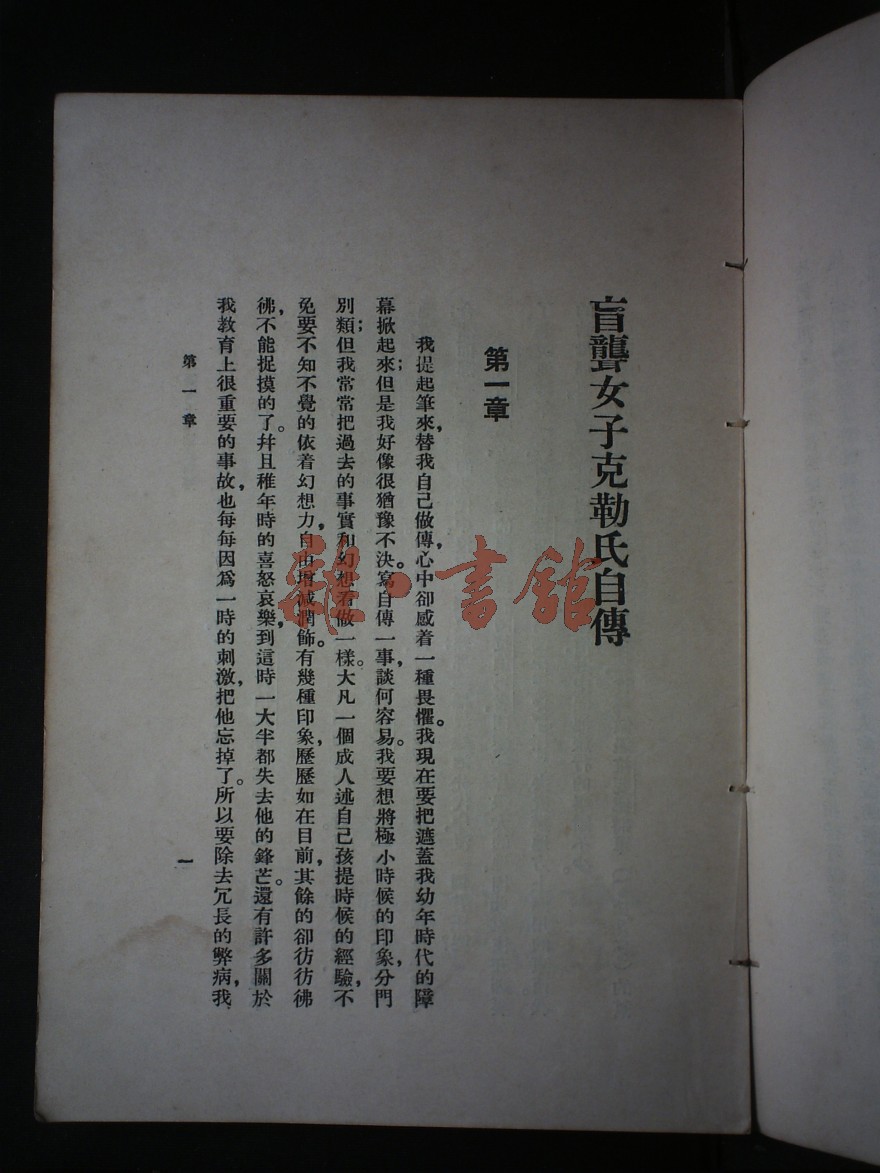 盲聾女子克勒氏自傳
第一章
我提起筆來，替我自己做傳，心中卻感着一種畏懼。我現在要把遮蓋我幼年時代的障
幕掀起來；但是我好像很猶豫不決。寫自傳一事，談何容易。我要想將極小時候的印象，分門
別類；但我常常把過去的事實和幻想看做一樣。大凡一個成人述自己孩提時候的經驗，不
免要不知不覺的依着幻想力，自由增減潤飾。有幾種印象，歷歷如在目前，其餘的卻彷彷彿
彿，不能捉摸的了。幷且稚年時的喜怒哀樂，到這時一大半都失去他的鋒芒。還有許多關於
我教育上很重要的事故，也每每因爲一時的刺激，把他忘掉了。所以要除去冗長的弊病，我
第一章
一
雜·書館